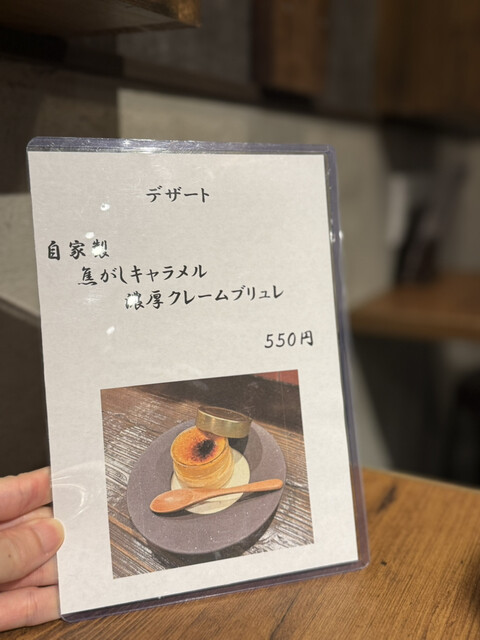 デザート
自家製
焦がしキャラメル
濃厚クレームブリュレ
550円